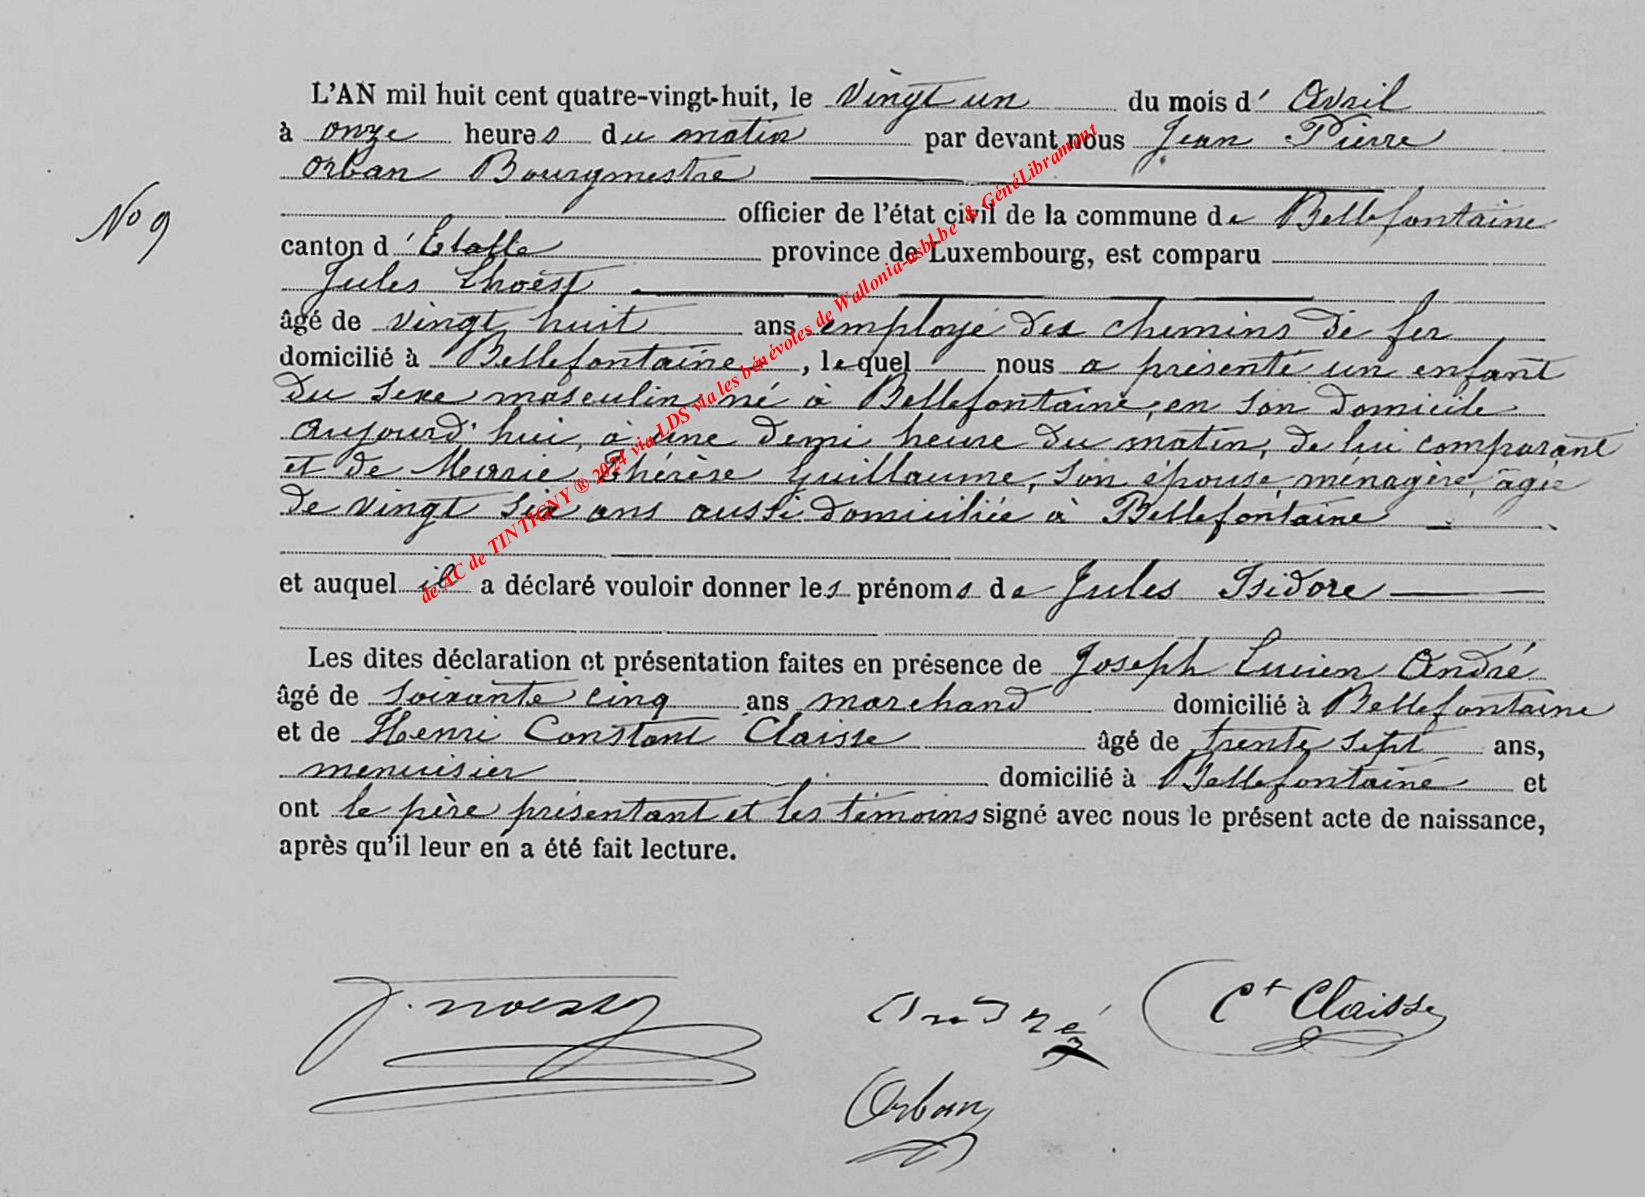 L'AN mil huit cent quatre-vingt-huit, le vingt un du mois d' Avril
à onze heures du matin par devant nous Jean Pierre
Orban Bourgmestre
officier de l'état civil de la commune de Bellefontaine
No 9
canton d'Etalle province de Luxembourg, est comparu
Jules Lhoest
âgé de vingt huit ans employé des chemins de fer
domicilié à Bellefontaine, lequel nous a présenté un enfant
du sexe masculin né à Bellefontaine, en son domicile
aujourd'hui, à une demi heure du matin, de lui comparant
et de Marie Thérèse Guillaume, son épouse, ménagère, âgée
de vingt six ans aussi domiciliée à Bellefontaine
et auquel il a déclaré vouloir donner les prénoms de Jules Isidore
Les dites déclaration et présentation faites en présence de Joseph Lucien André
âgé de soixante cinq ans marchand domicilié à Bellefontaine
et de Henri Constant Claisse âgé de trente sept ans,
menuisier domicilié à Bellefontaine et
ont le père présentant et les témoins signé avec nous le présent acte de naissance,
après qu'il leur en a été fait lecture.
André Ct Claisse
Orban
de AC de TINTIGNY ® 2024 via LDS via les bénévoles de Wallonia-asbl.be & GénéLibramont